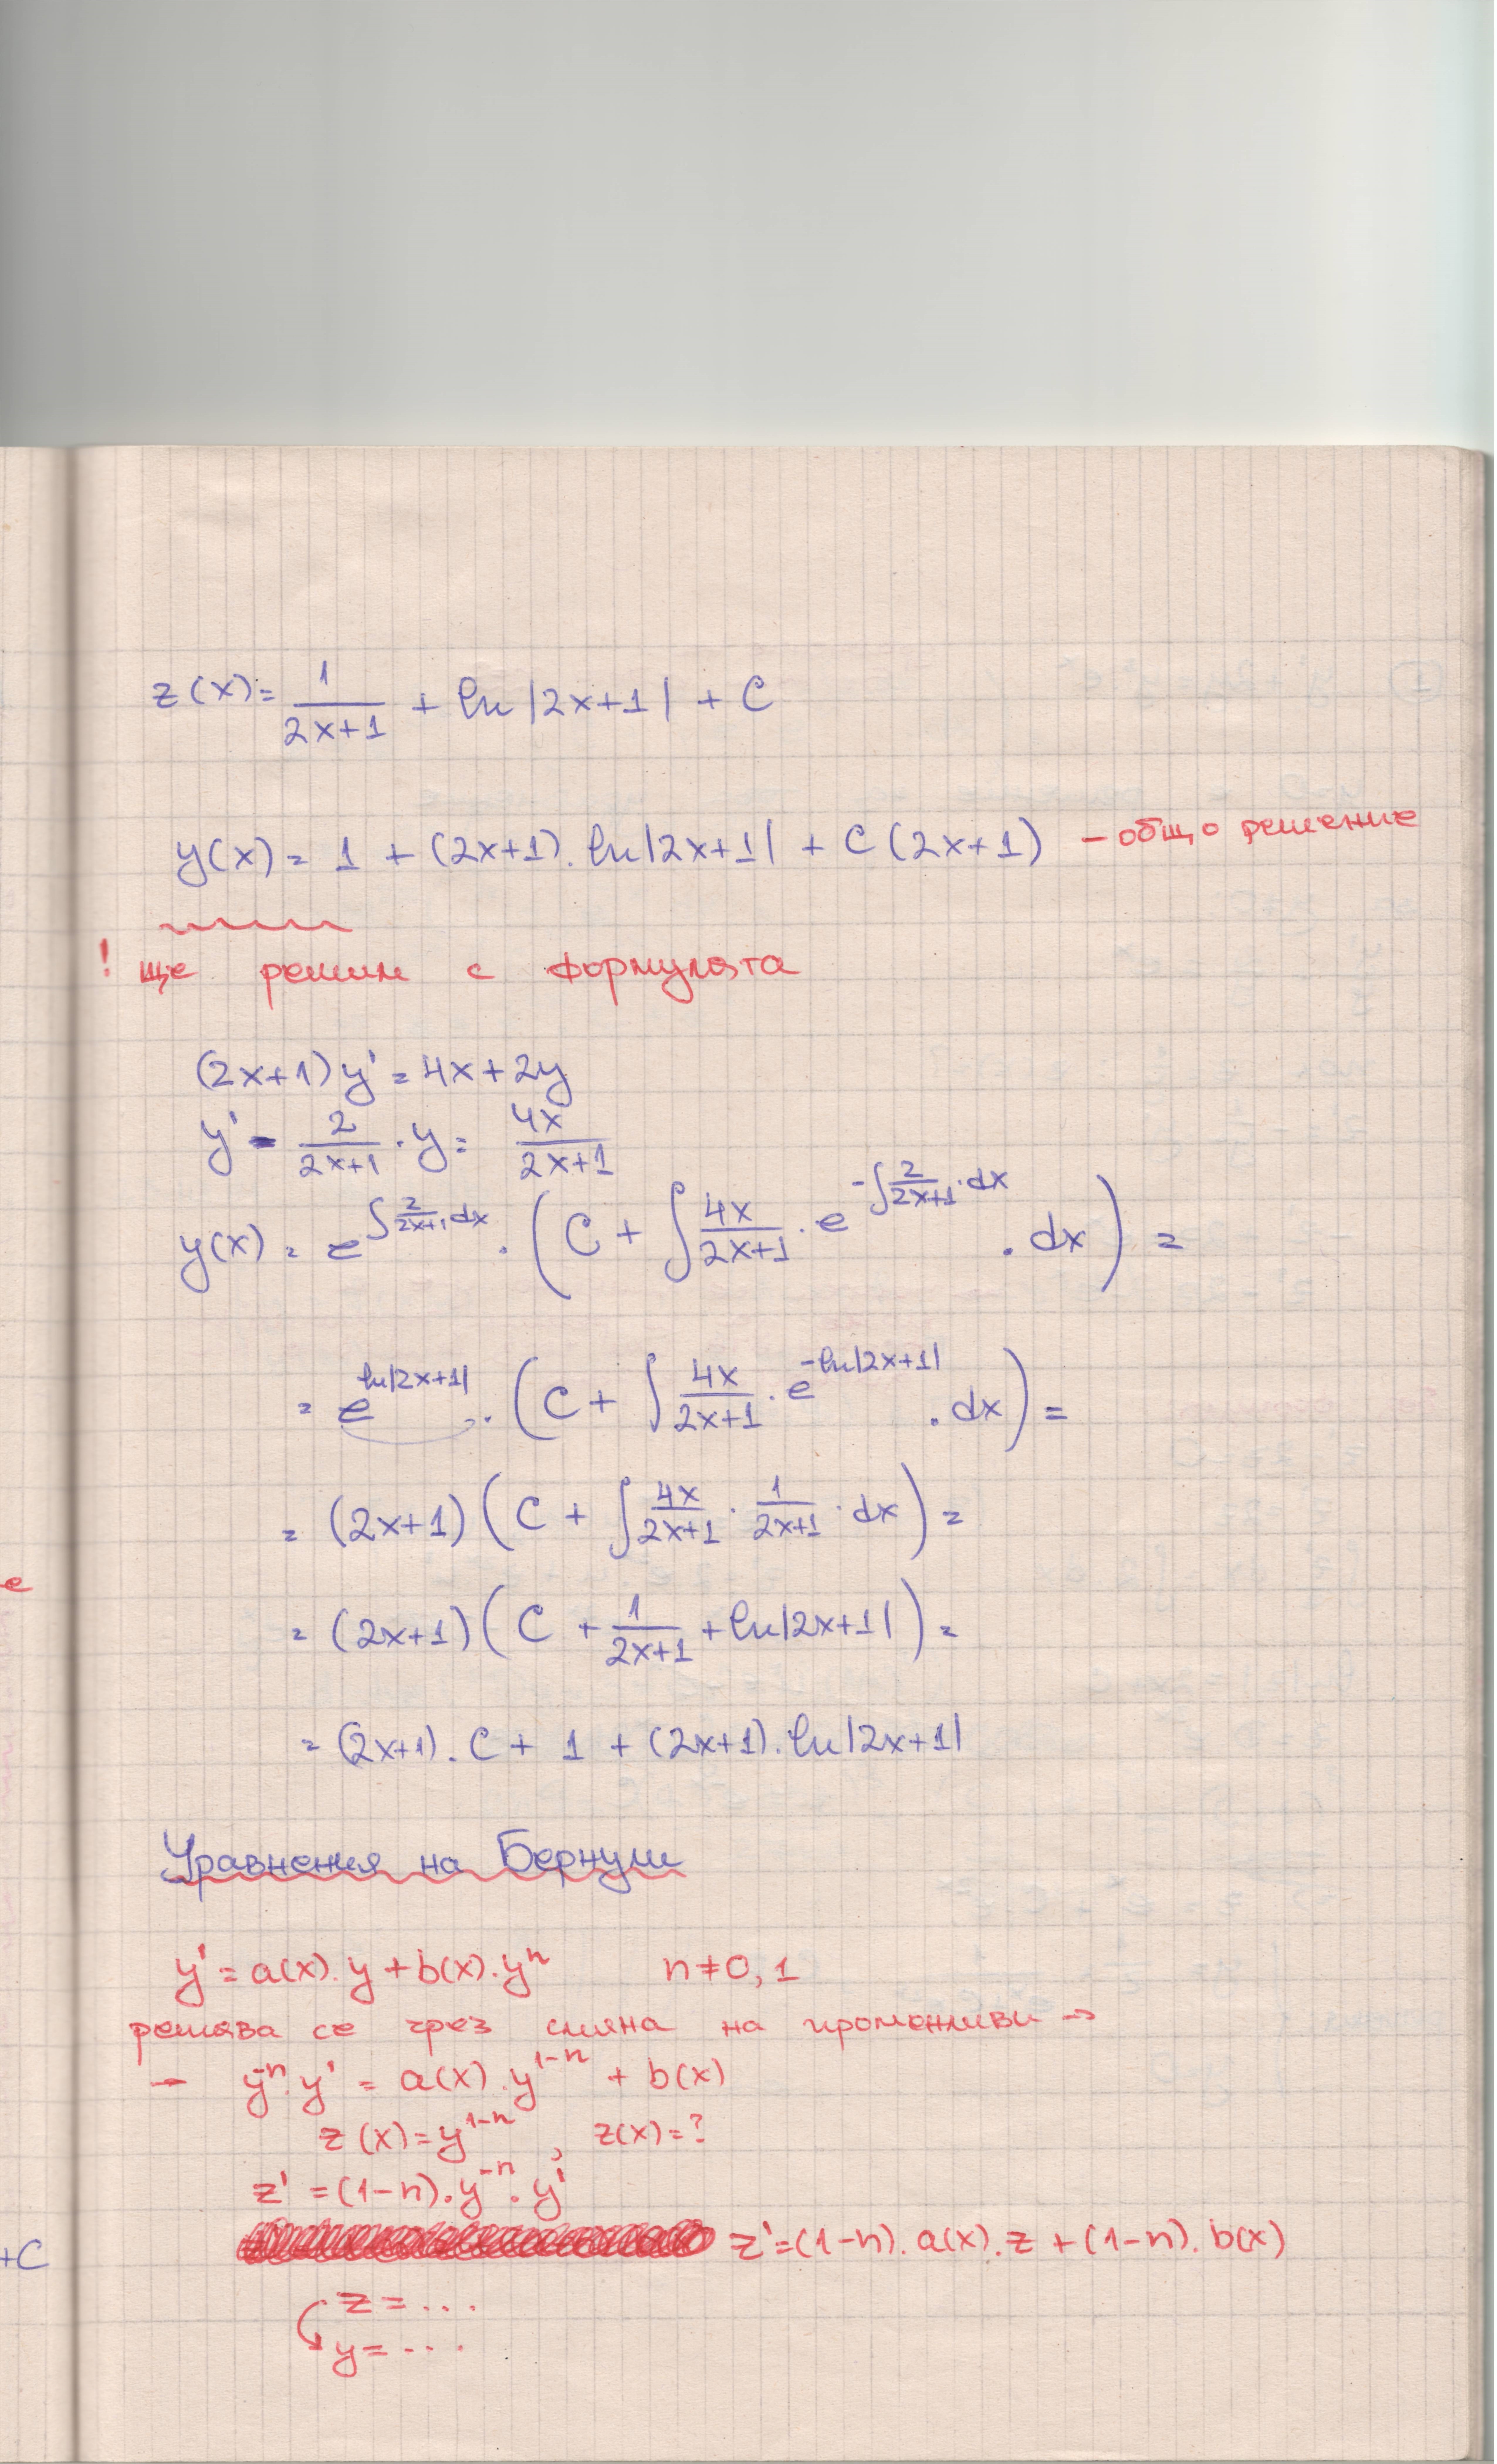 z(x) = 1/(2x+1) + ln|2x+1| + C
y(x) = 1 + (2x+1).ln|2x+1| + C(2x+1) – общо решение
! ще решим с формулята
(2x+1)y' = 4x+2y
y' - 2/(2x+1) . y = 4x/(2x+1)
y(x) = e^(∫ 2/(2x+1) . dx) . (C + ∫ 4x/(2x+1) . e^(-∫ 2/(2x+1) . dx) . dx) =
= e^(ln|2x+1|) . (C + ∫ 4x/(2x+1) . e^(-ln|2x+1|) . dx) =
= (2x+1)(C + ∫ 4x/(2x+1) . 1/(2x+1) . dx) =
= (2x+1)(C + 1/(2x+1) + ln|2x+1|) =
= (2x+1).C + 1 + (2x+1).ln|2x+1|
Уравнения на Бернули
y' = a(x).y + b(x).y^n n≠0,1
решява се чрез смяна на променливи →
– y^(-n).y' = a(x).y^(1-n) + b(x)
z(x) = y^(1-n) , z(x) = ?
z' = (1-n).y^(-n).y'
z' = (1-n).a(x).z + (1-n).b(x)
z = ...
y = ...
e
+C